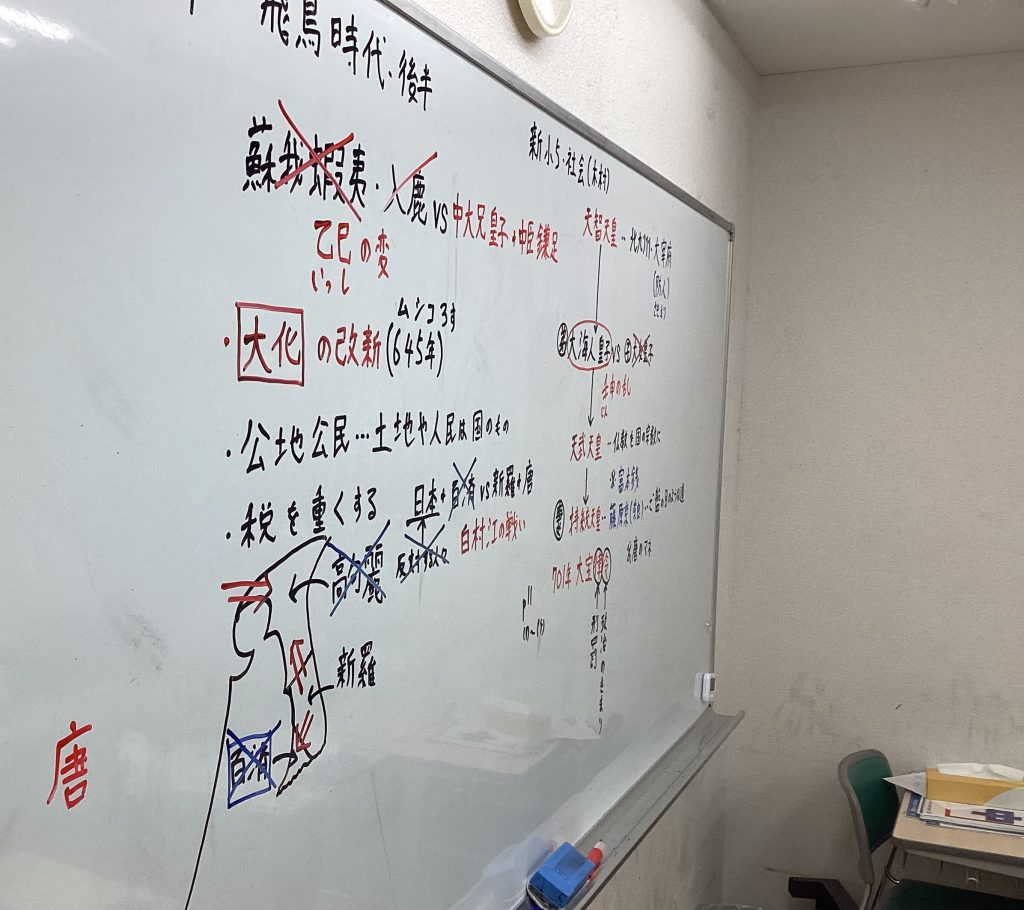 飛鳥時代・後半
蘇我蝦夷・入鹿 vs 中大兄皇子+中臣鎌足
乙巳の変
いっし
ムシコろす
・大化の改新(645年)
・公地公民…土地や人民は国のもの
・税を重くする
日本+百済 vs 新羅+唐
白村江の戦い
高句麗
新羅
百済
唐
新小5・社会(木村)
天智天皇 - 水城・大宰府
(防人)
さきもり
弟 大海人皇子 vs 子 大友皇子
壬申の乱
天武天皇 - 仏教を国の宗教に
※富本銭
妻 持統天皇 - 藤原京(奈良)
※唐のマネ
701年 大宝律令
刑罰
政治の決まり